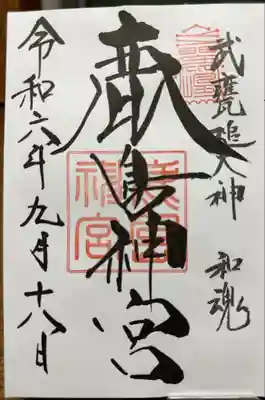 武甕槌大神 和魂
鹿島神宮
鹿島
神宮
令和六年九月十八日